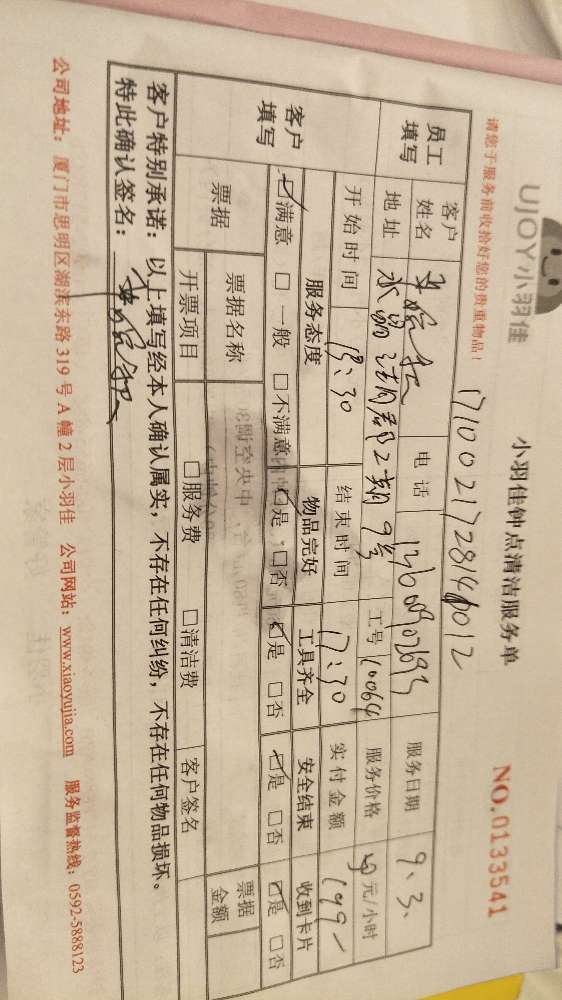 UJOY小羽佳
小羽佳钟点清洁服务单
NO.0133541
请您于服务前收拾好您的贵重物品！
员工填写
客户姓名
电话
服务日期
9.3.
地址
水晶湖郡2期9号
工号
10064
服务价格
元/小时
开始时间
13:30
结束时间
17:30
实付金额
199
客户填写
服务态度
物品完好
工具齐全
安全结束
收到卡片
☑满意 □一般 □不满意
☑是 □否
☑是 □否
☑是 □否
☑是 □否
票据
票据名称
票据金额
开票项目
□服务费
□清洁费
客户签名
客户特别承诺：以上填写经本人确认属实，不存在任何纠纷，不存在任何物品损坏。
特此确认签名：
公司地址：厦门市思明区湖滨东路319号A幢2层小羽佳 公司网站：www.xiaoyujia.com 服务监督热线：0592-5888123